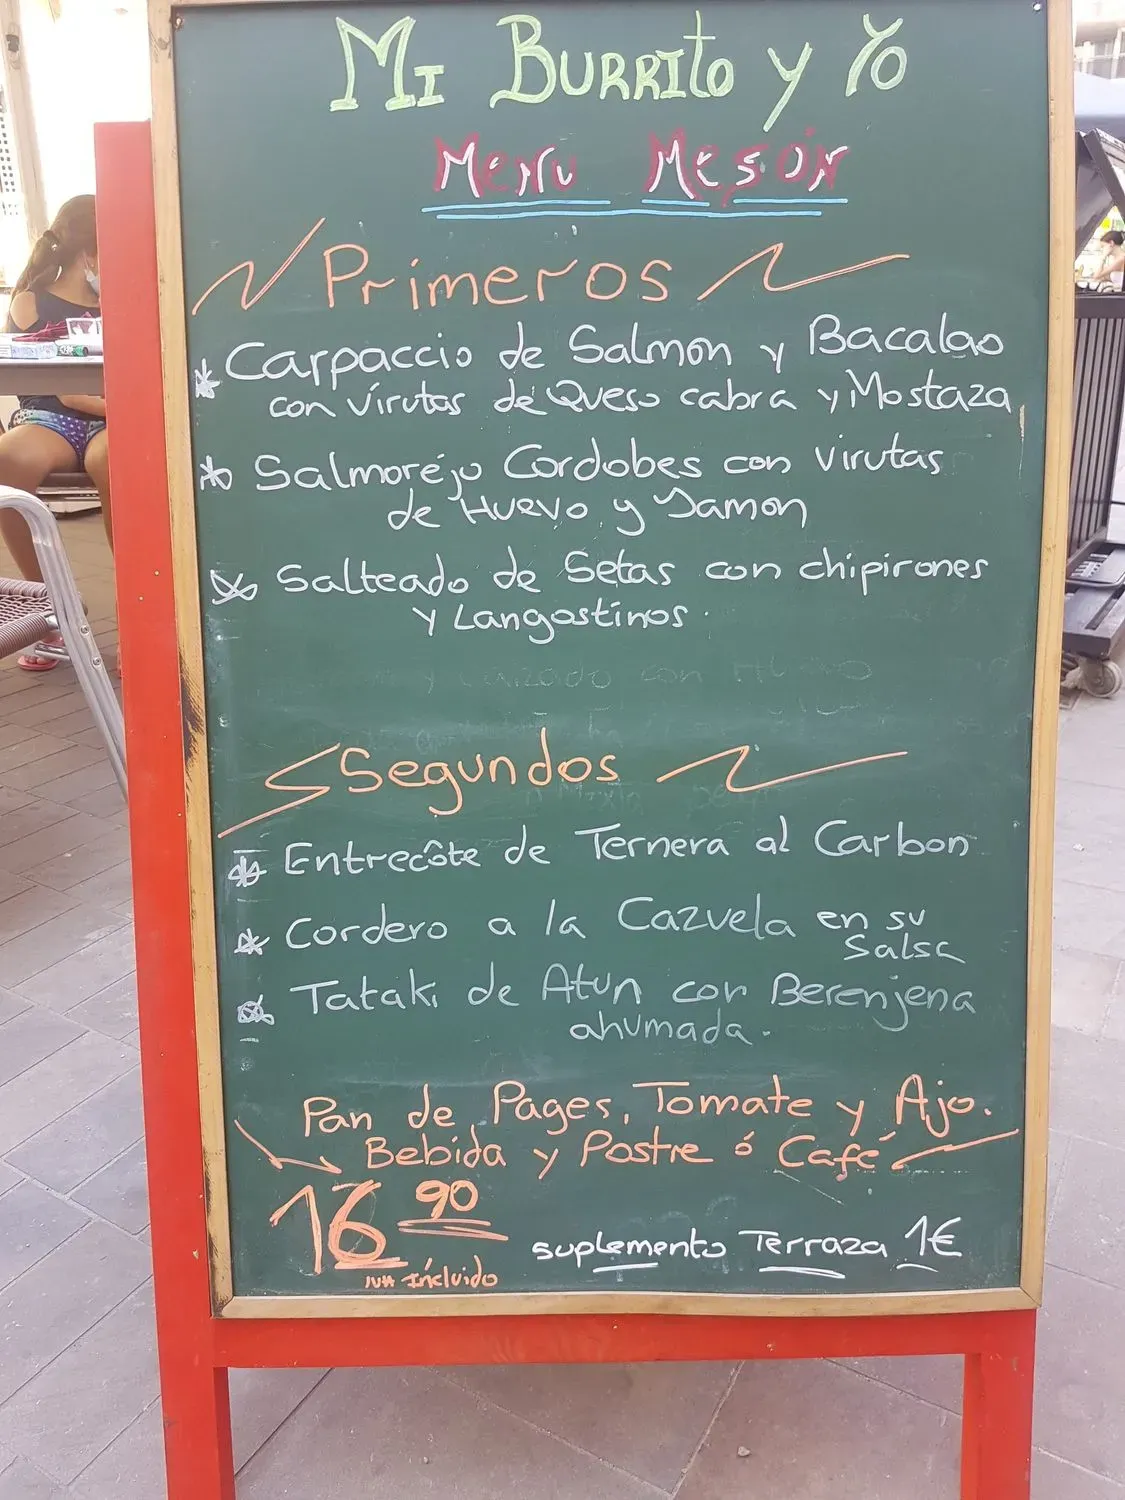 Mi Burrito y Yo
Menu Mesón
Primeros
* Carpaccio de Salmon y Bacalao
con virutas de Queso cabra y Mostaza
* Salmorejo Cordobes con virutas
de Huevo y Jamon
* Salteado de Setas con chipirones
y Langostinos.
Segundos
* Entrecôte de Ternera al Carbon
* Cordero a la Cazuela en su
Salsa
* Tataki de Atun con Berenjena
ahumada.
Pan de Pages, Tomate y Ajo.
Bebida y Postre ó Café
16 90
IVA incluido
suplemento Terraza 1€